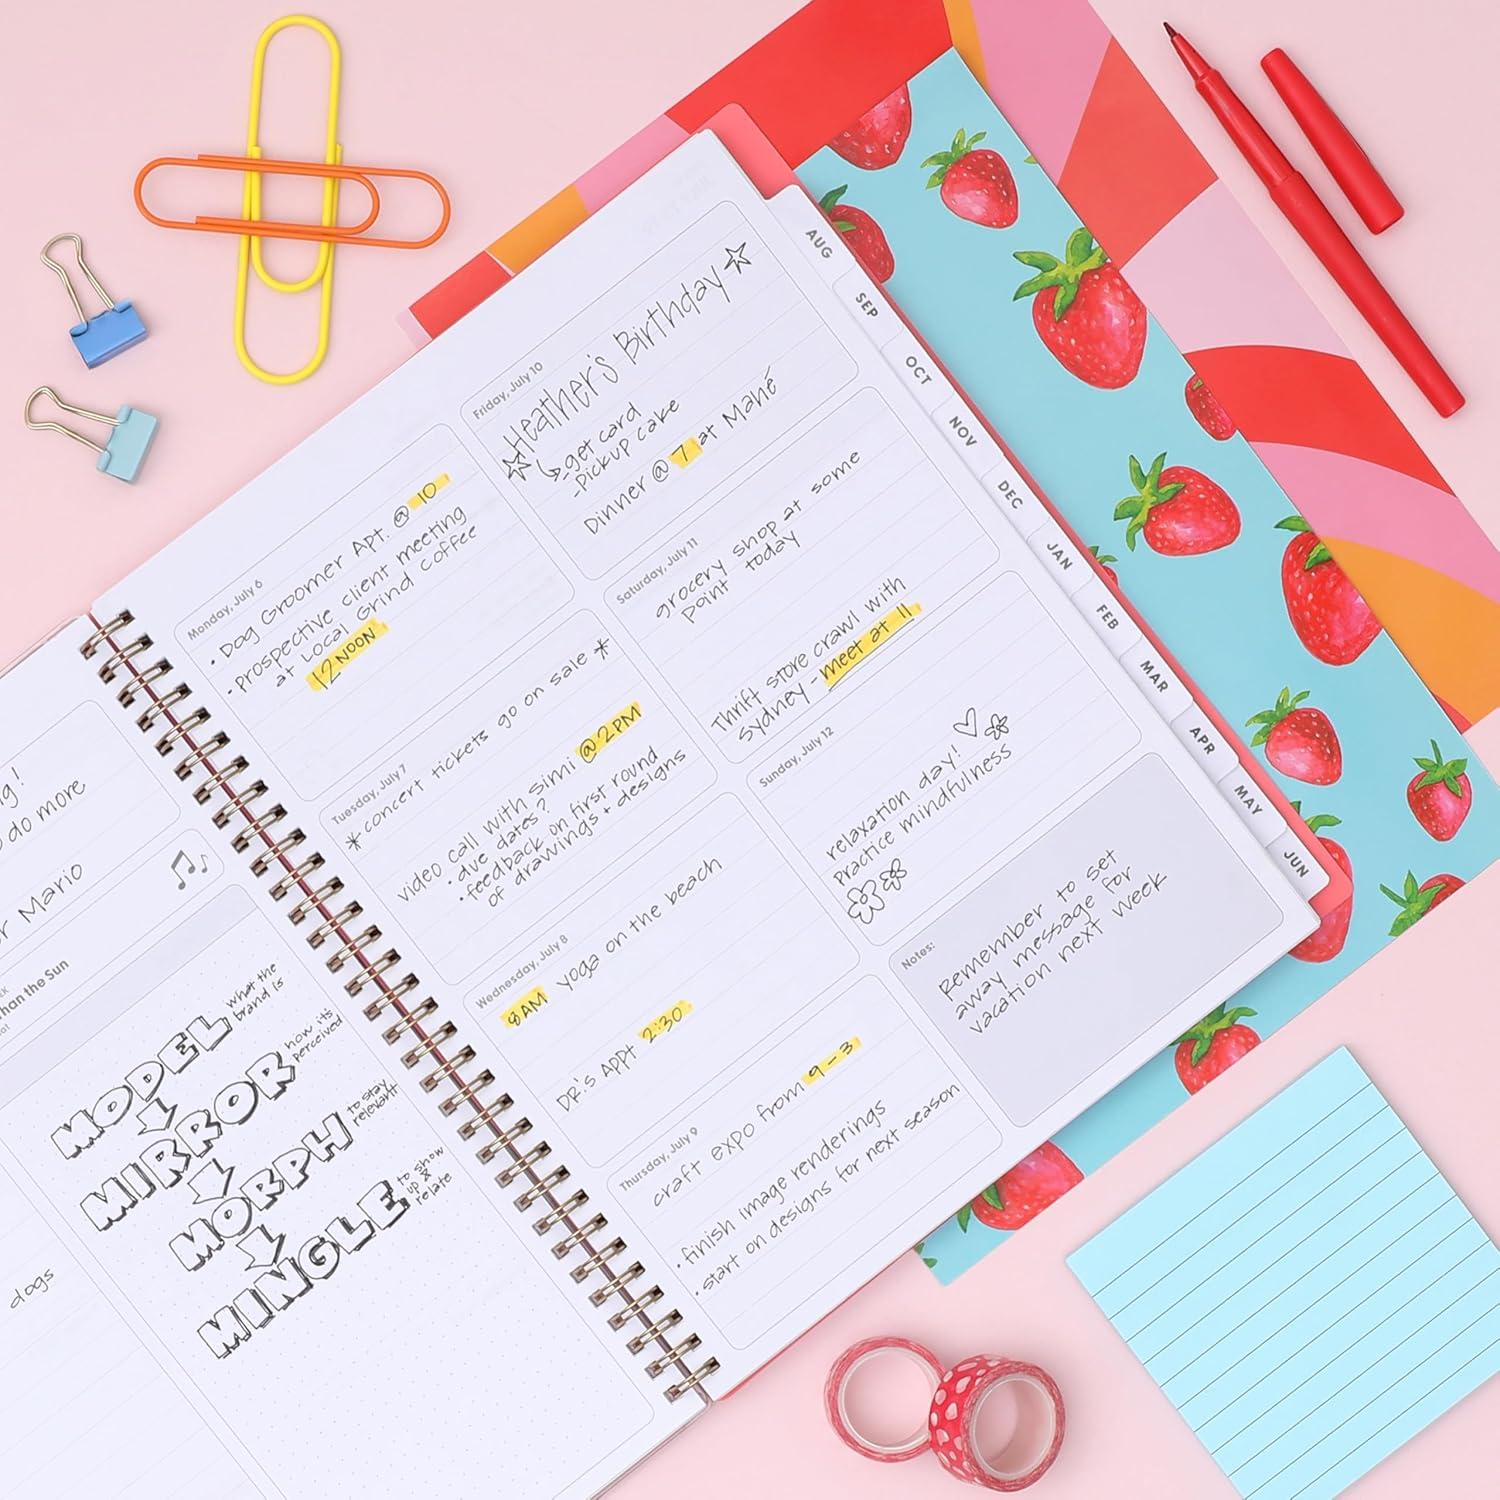 g!
do more
r Mario
han the Sun
MODEL
what the
brand is
MIRROR
how it's
perceived
MORPH
to stay
relevant
MINGLE
to show
up &
relate
dogs
Monday, July 6
• Dog Groomer Apt. @ 10
• prospective client meeting
at Local Grind coffee
12 NOON
Tuesday, July 7
* concert tickets go on sale *
video call with Simi @ 2PM
• due dates?
• feedback on first round
of drawings + designs
Wednesday, July 8
8AM yoga on the beach
DR.'s APPt 2:30
Thursday, July 9
craft expo from 9-3
• finish image renderings
• start on designs for next season
Friday, July 10
Heather's Birthday
- get card
- Pickup cake
Dinner @ 7 at Mané
Saturday, July 11
grocery shop at some
point today
Thrift store crawl with
Sydney - meet at 11
Sunday, July 12
relaxation day!
Practice mindfulness
Notes:
Remember to set
away message for
vacation next week
AUG
SEP
OCT
NOV
DEC
JAN
FEB
MAR
APR
MAY
JUN